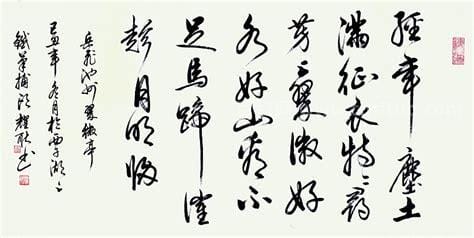 經年塵土
滿征衣特々尋
芳上翠微好
水好山看不
足馬蹄催
趁月明歸
岳飛池州翠微亭
己丑年冬月於西子湖
鐵筆耀書